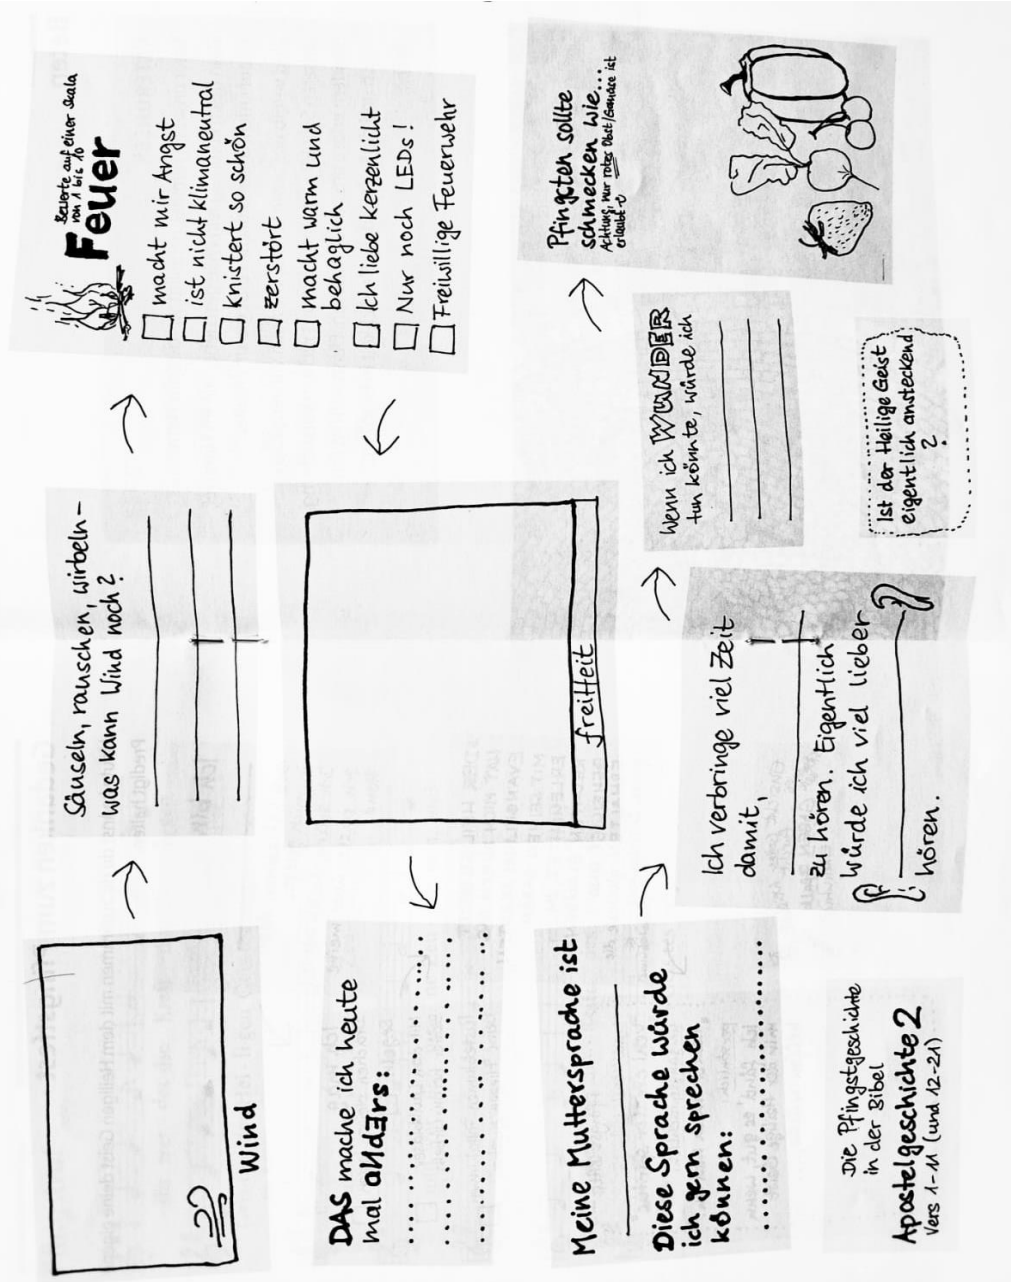 Wind
Säuseln, rauschen, wirbeln–
was kann Wind noch?
Bewerte auf einer Scala
von 1 bis 10
Feuer
macht mir Angst
ist nicht klimaneutral
knistert so schön
zerstört
macht warm und
behaglich
Ich liebe Kerzenlicht
Nur noch LEDs!
Freiwillige Feuerwehr
freiHeit
DAS mache ich heute
mal anders:
Meine Muttersprache ist
Diese Sprache würde
ich gern sprechen
können:
Ich verbringe viel Zeit
damit,
zu hören. Eigentlich
würde ich viel lieber
hören.
Wenn ich WUNDER
tun könnte, würde ich
Pfingsten sollte
schmecken wie...
Achtung, nur rotes Obst/Gemüse ist
erlaubt
Die Pfingstgeschichte
in der Bibel
Apostelgeschichte 2
Vers 1-11 (und 12-21)
Ist der Heilige Geist
eigentlich ansteckend
?